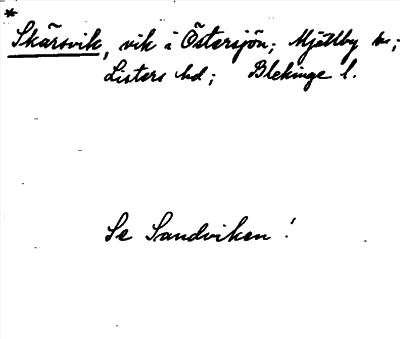 *
Skärsvik, vik i Östersjön; Mjällby sn;
Listers hd; Blekinge l.
Se Sandviken!